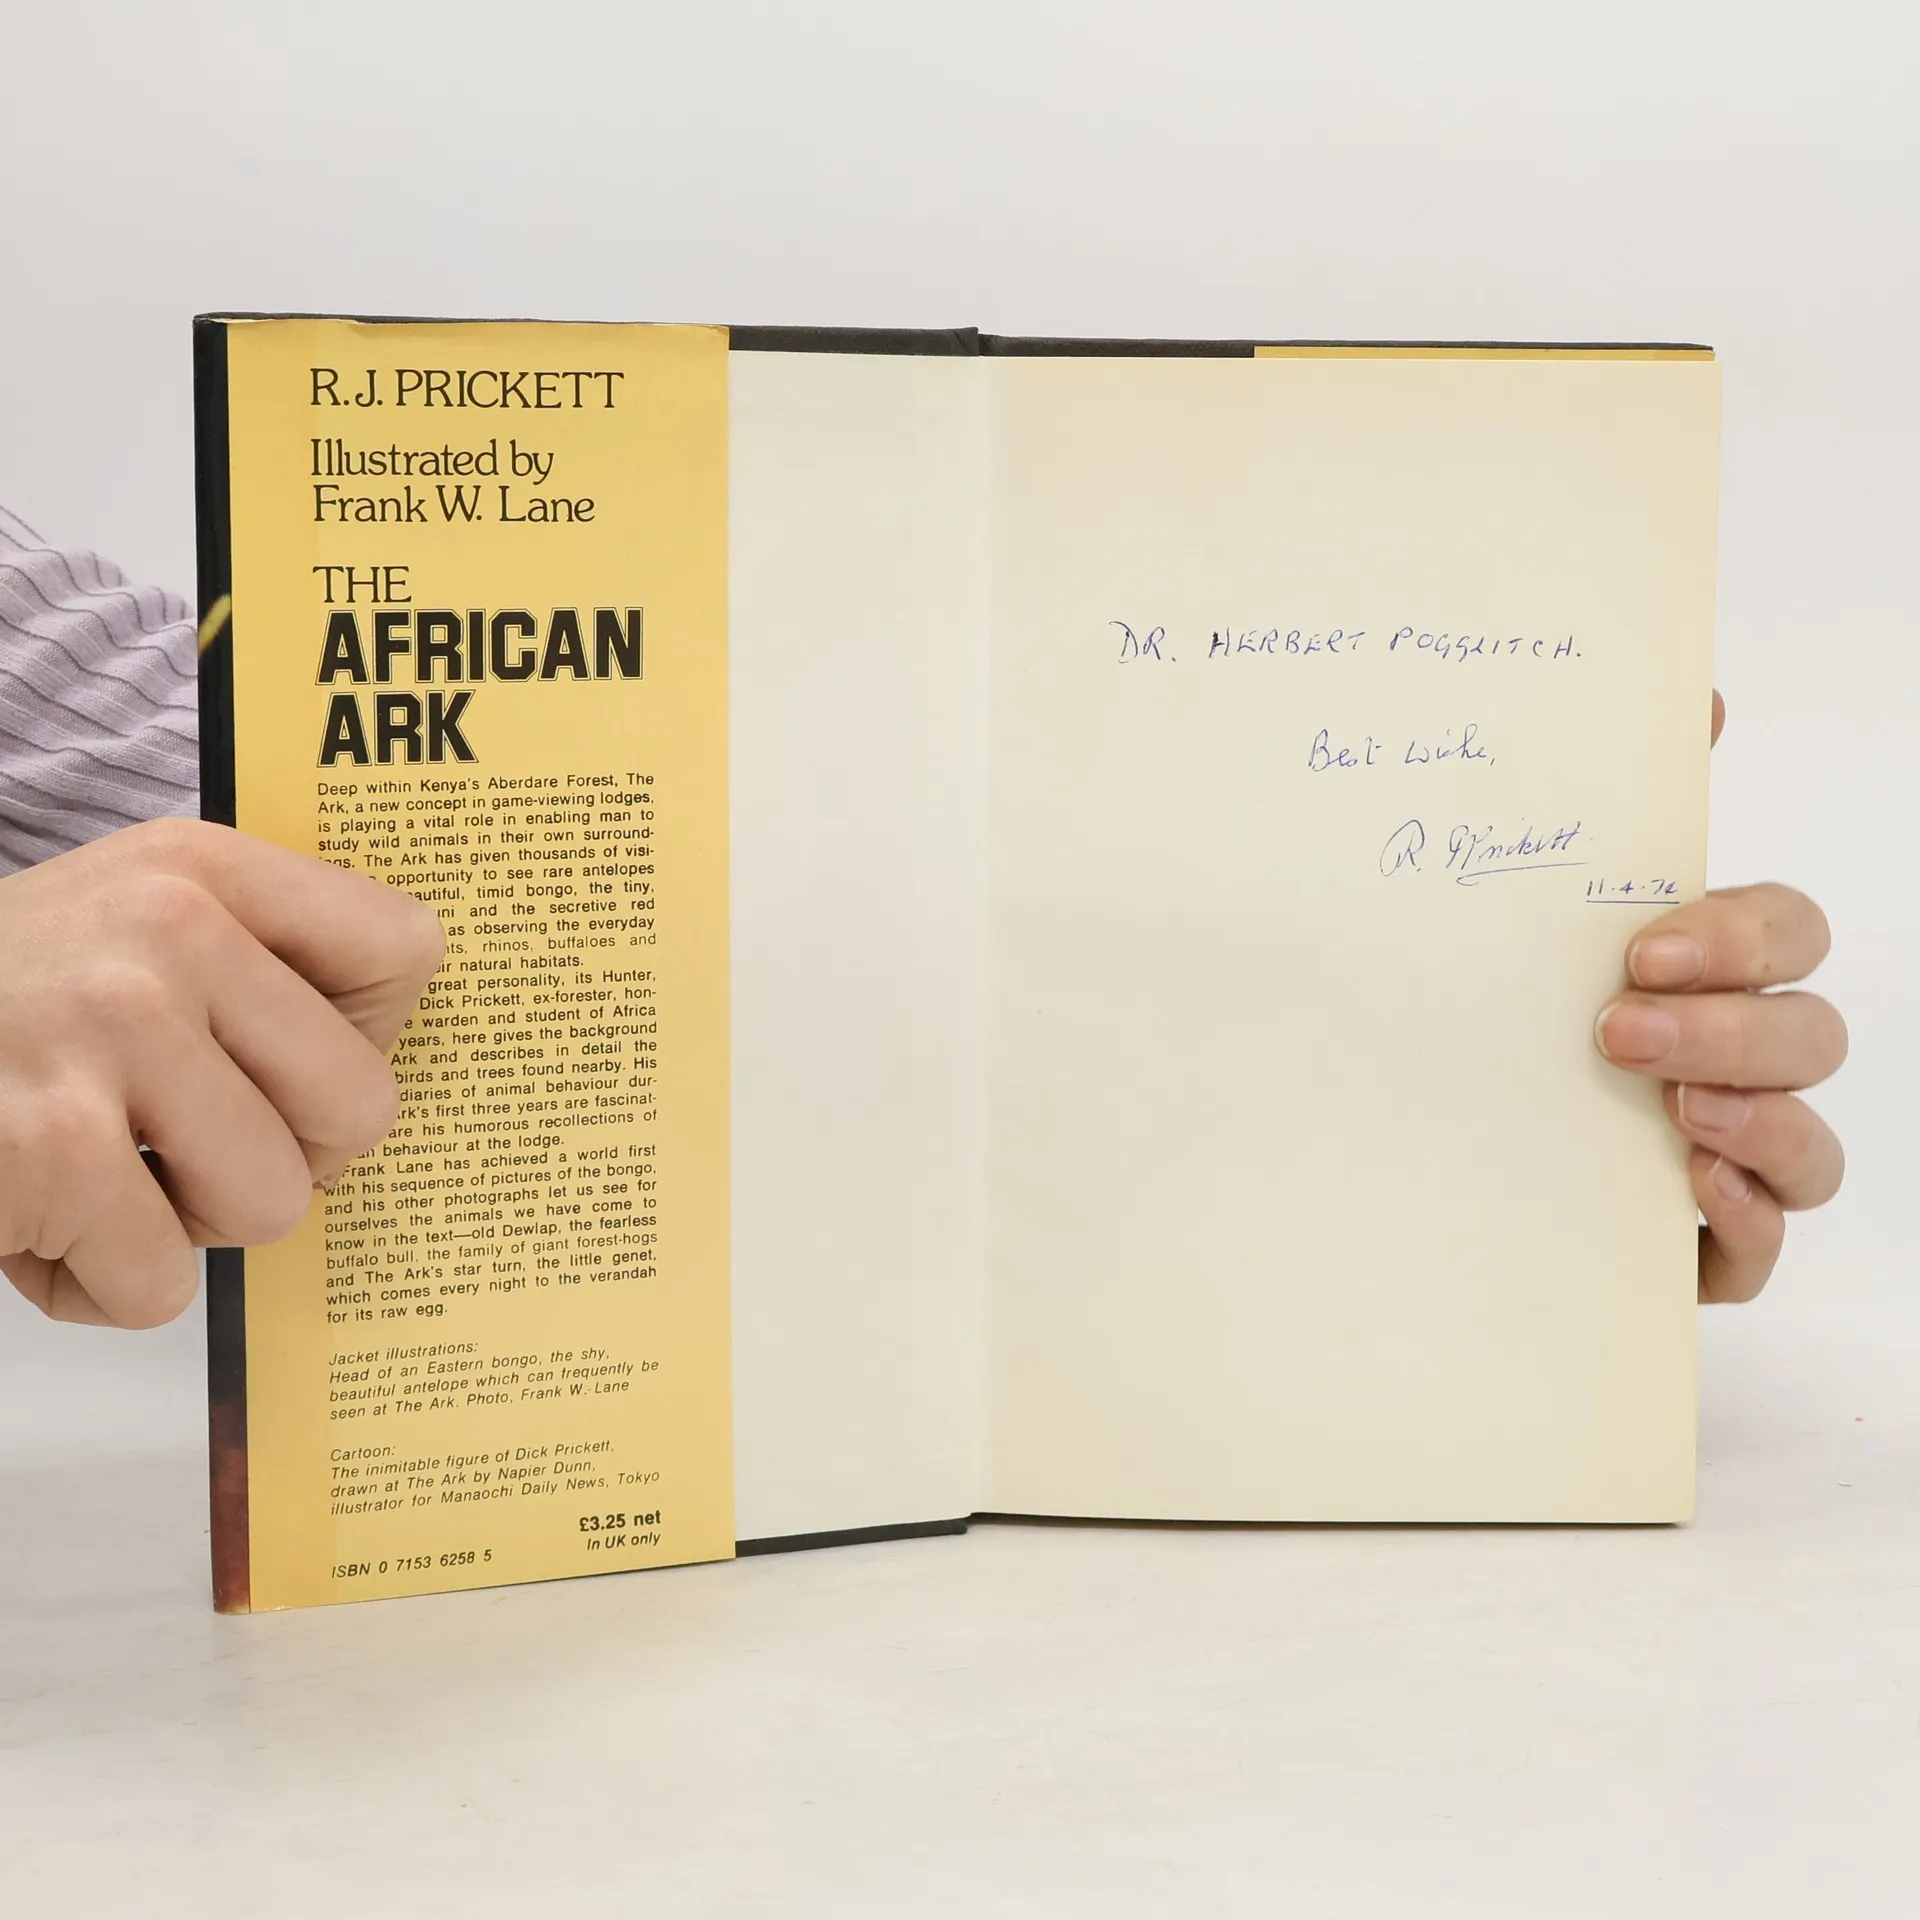 R.J. PRICKETT
Illustrated by
Frank W. Lane
THE
AFRICAN
ARK
Deep within Kenya's Aberdare Forest, The
Ark, a new concept in game-viewing lodges,
is playing a vital role in enabling man to
study wild animals in their own surround-
ings. The Ark has given thousands of visi-
opportunity to see rare antelopes
timid bongo, the tiny,
and the secretive red
as observing the everyday
rhinos, buffaloes and
natural habitats.
great personality, its Hunter,
Dick Prickett, ex-forester, hon-
warden and student of Africa
years, here gives the background
Ark and describes in detail the
birds and trees found nearby. His
diaries of animal behaviour dur-
first three years are fascinat-
are his humorous recollections of
behaviour at the lodge.
Frank Lane has achieved a world first
with his sequence of pictures of the bongo,
and his other photographs let us see for
ourselves the animals we have come to
know in the text—old Dewlap, the fearless
buffalo bull, the family of giant forest-hogs
and The Ark's star turn, the little genet,
which comes every night to the verandah
for its raw egg.
Jacket illustrations:
Head of an Eastern bongo, the shy,
beautiful antelope which can frequently be
seen at The Ark. Photo, Frank W. Lane
Cartoon:
The inimitable figure of Dick Prickett,
drawn at The Ark by Napier Dunn,
illustrator for Manaochi Daily News, Tokyo
£3.25 net
In UK only
ISBN 0 7153 6258 5
DR. HERBERT POGGLITCH.
Best wishes,
R. J Prickett
11.4.74